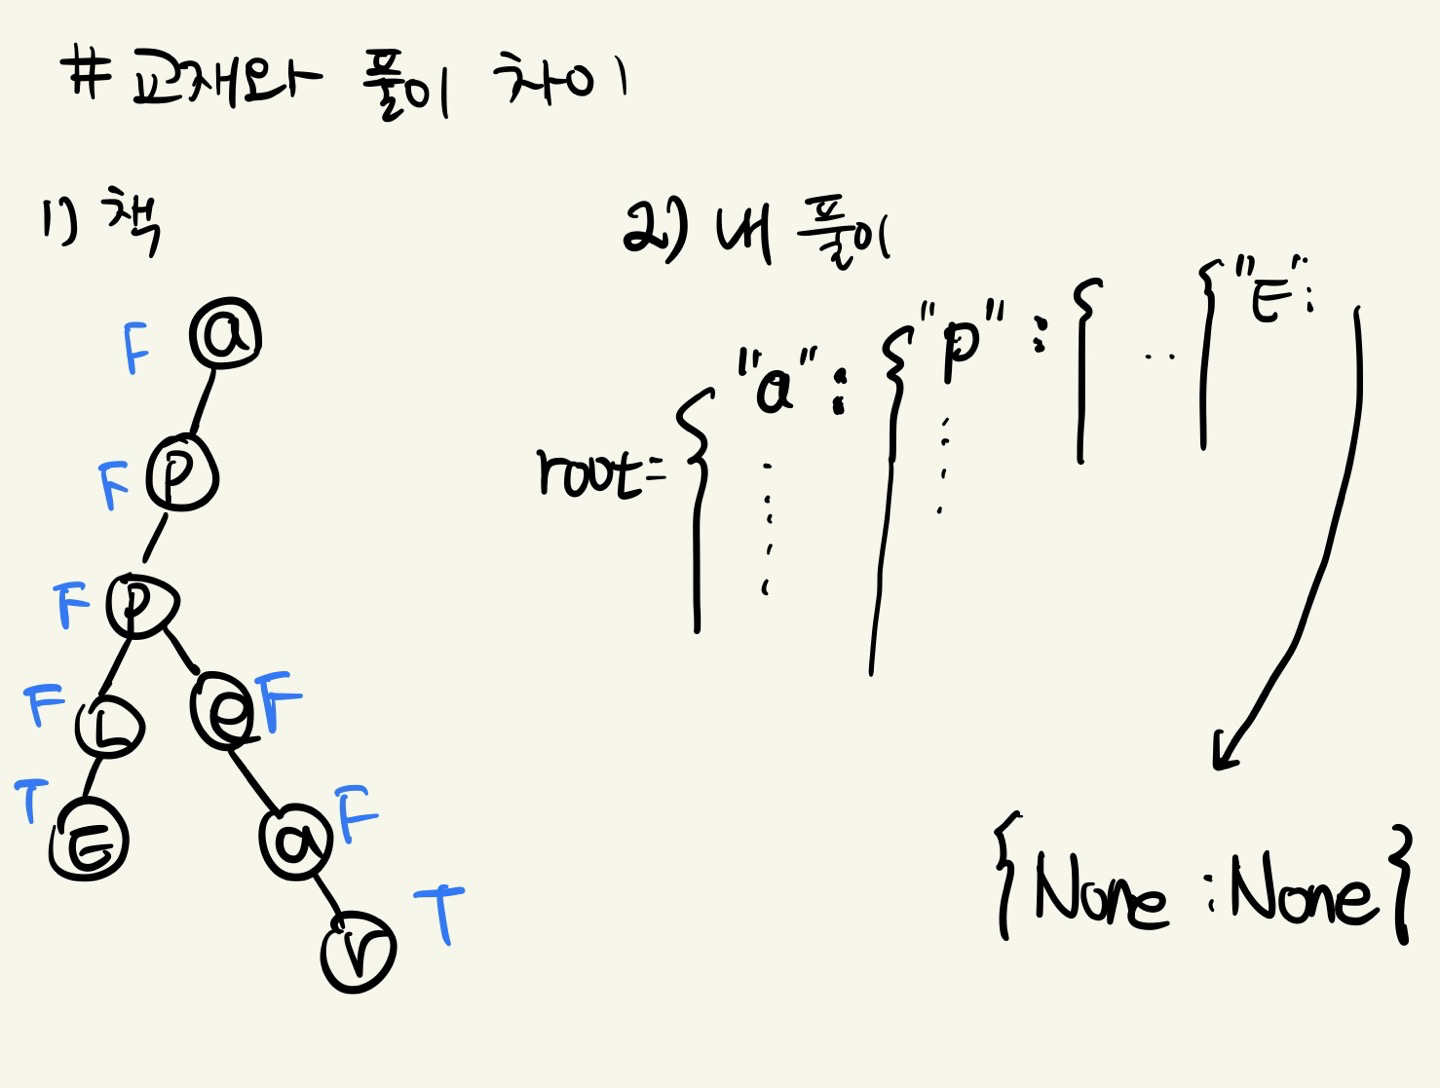 # 교재와 풀이 차이
1) 책
F a
F P
F P
F L e F
T E a F
r T
2) 내 풀이
root = { "a" : { "P" : { .. { "E" :
{ None : None }